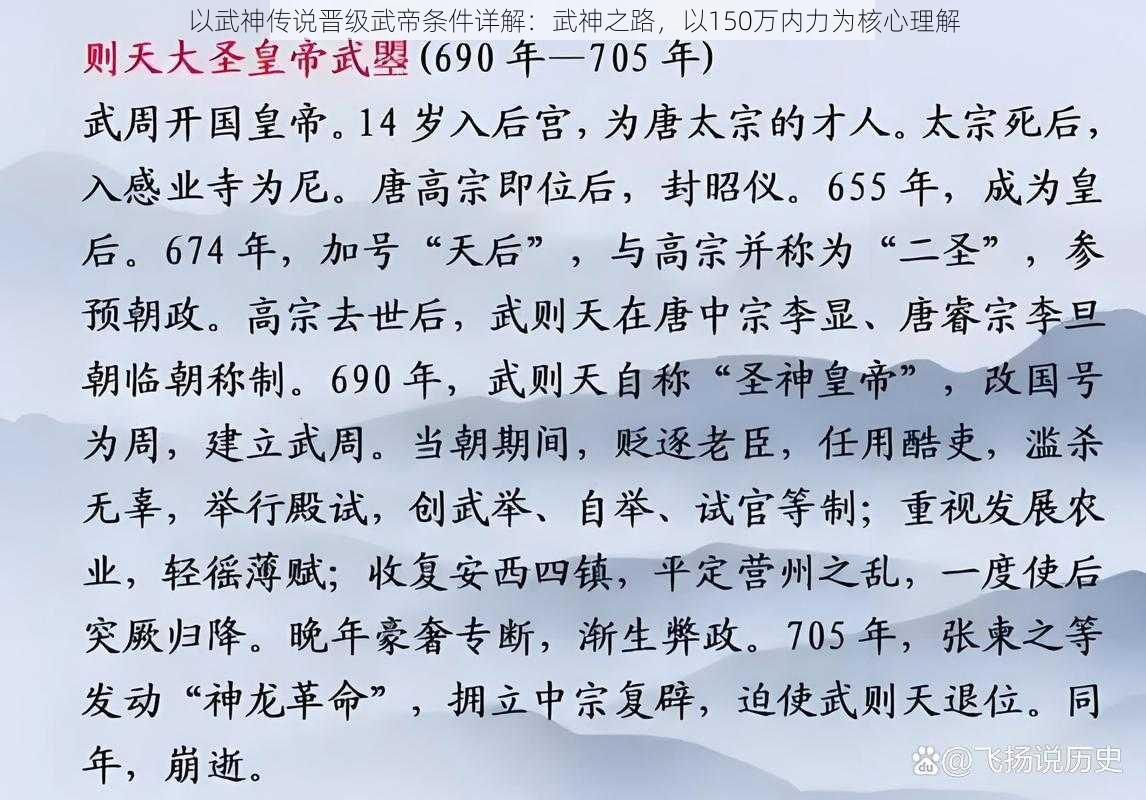 以武神传说晋级武帝条件详解：武神之路，以150万内力为核心理解
则天大圣皇帝武曌(690年—705年)
武周开国皇帝。14岁入后宫，为唐太宗的才人。太宗死后，
入感业寺为尼。唐高宗即位后，封昭仪。655年，成为皇
后。674年，加号“天后”，与高宗并称为“二圣”，参
预朝政。高宗去世后，武则天在唐中宗李显、唐睿宗李旦
朝临朝称制。690年，武则天自称“圣神皇帝”，改国号
为周，建立武周。当朝期间，贬逐老臣，任用酷吏，滥杀
无辜，举行殿试，创武举、自举、试官等制；重视发展农
业，轻徭薄赋；收复安西四镇，平定营州之乱，一度使后
突厥归降。晚年豪奢专断，渐生弊政。705年，张柬之等
发动“神龙革命”，拥立中宗复辟，迫使武则天退位。同
年，崩逝。
du@飞扬说历史